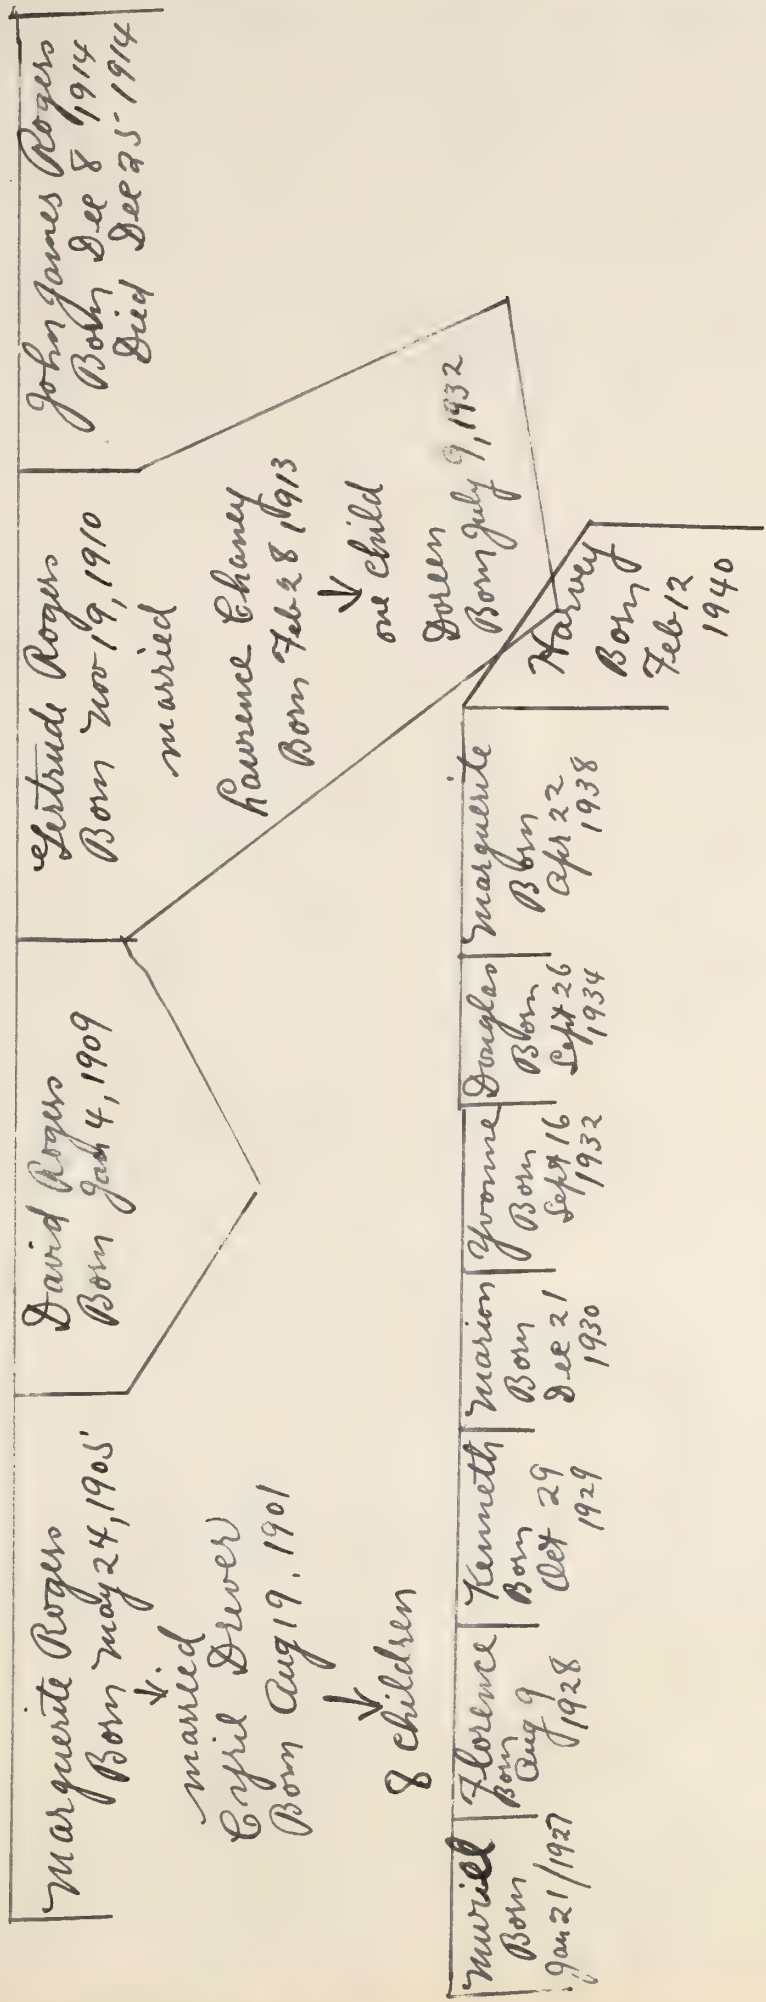 Marguerite Rogers
Born May 24, 1905
married
Cyril Drever
Born Aug 19. 1901
8 children
David Rogers
Born Jan 4, 1909
Gertrude Rogers
Born Nov 19, 1910
married
Lawrence Chaney
Born Feb 28, 1913
one child
Doreen
Born July 9, 1932
John James Rogers
Born Dec 8 1914
Died Dec 25 1914
Muriel
Born
Jan 21/1927
Florence
Born
Aug 9
1928
Kenneth
Born
Oct 29
1929
Marion
Born
Dec 21
1930
Yvonne
Born
Sept 16
1932
Douglas
Born
Sept 26
1934
Marguerite
Born
Apr 22
1938
Harvey
Born
Feb 12
1940